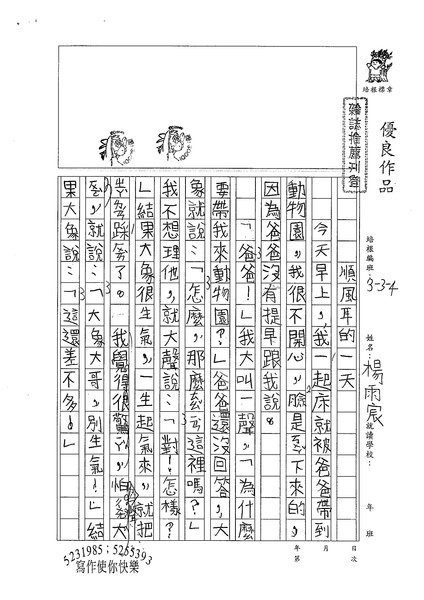 培根標章
雜誌推薦刊登
優良作品
培根編班：3-3-4
姓名：楊雨宸
就讀學校：
年 班
年 月 日
第 次
順風耳的一天
今天早上，我一起床就被爸爸帶到
動物園，我很不開心，臉是丟下來的，
因為爸爸沒有提早跟我說。
「爸爸！」我大叫一聲，「為什麼
要帶我來動物園？」爸爸還沒回答，大
象就說：「怎麼，那麼去這裡嗎？」
我不想理他，就大聲說：「對！怎樣？
」結果大象很生氣，一生起氣來，就把
踩了。我覺得很驚訝，怕大
，就說：「大象大哥，別生氣！」結
果大象說：「這還差不多！」
5231985；5265393
寫作使你快樂